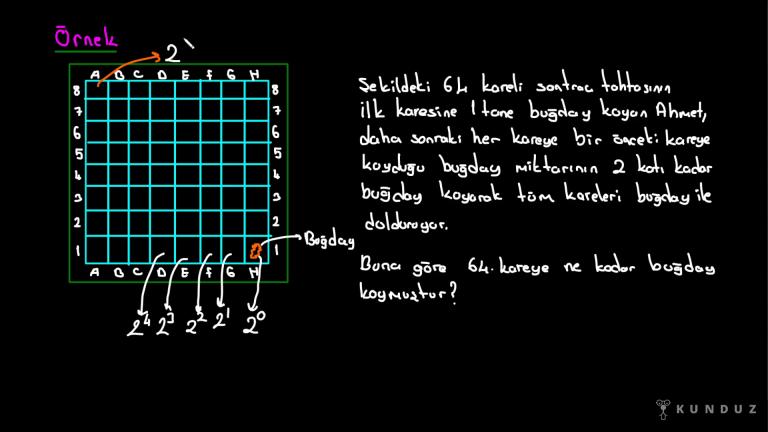 Örnek
2
A B C D E F G H
8 8
7 7
6 6
5 5
4 4
3 3
2 2
1 1
A B C D E F G H
Buğday
2⁴ 2³ 2² 2¹ 2⁰
Şekildeki 64 kareli santranc tahtasının
ilk karesine 1 tane buğday koyan Ahmet,
daha sonraki her kareye bir önceki kareye
koyduğu buğday miktarının 2 katı kadar
buğday koyarak tüm kareleri buğday ile
dolduruyor.
Buna göre 64. kareye ne kadar buğday
koymuştur?
KUNDUZ